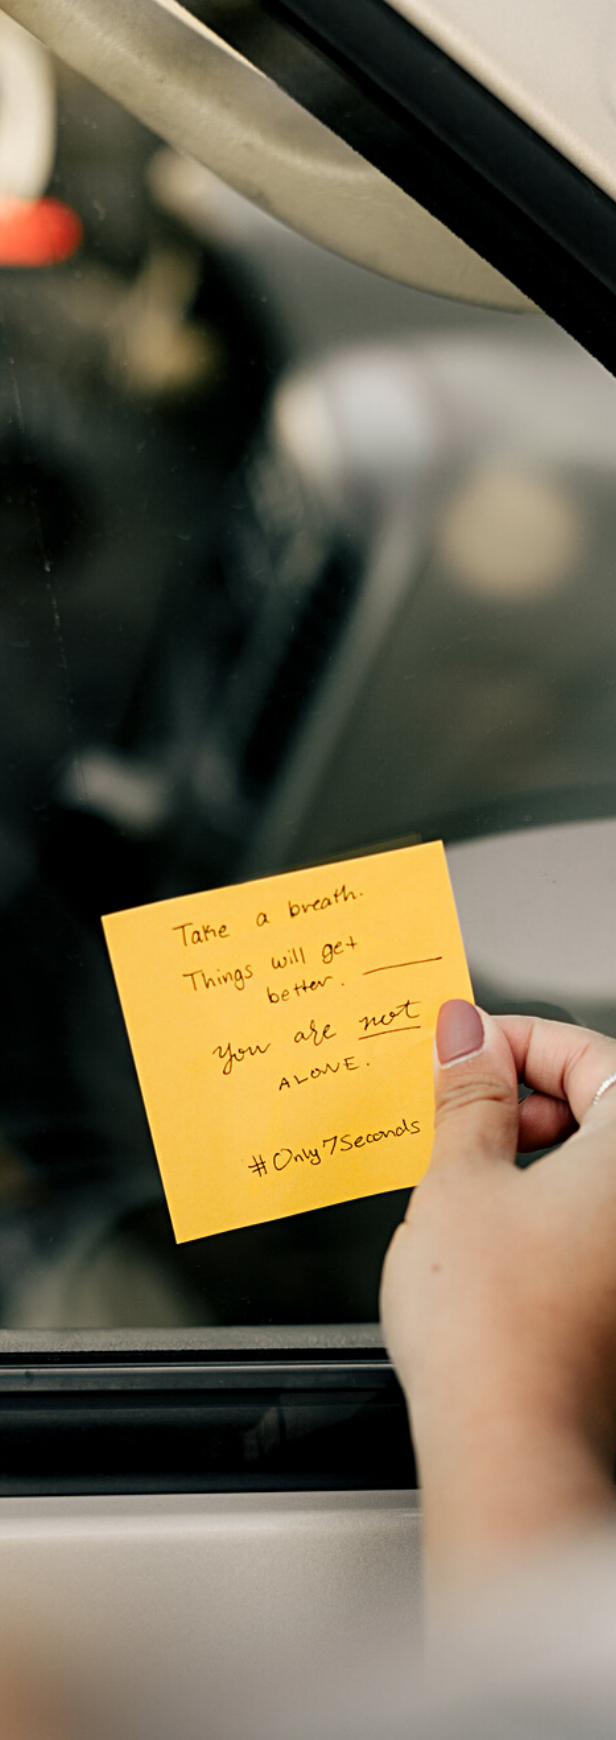 Take a breath.
Things will get
better.
you are not
ALONE.
#Only7Seconds